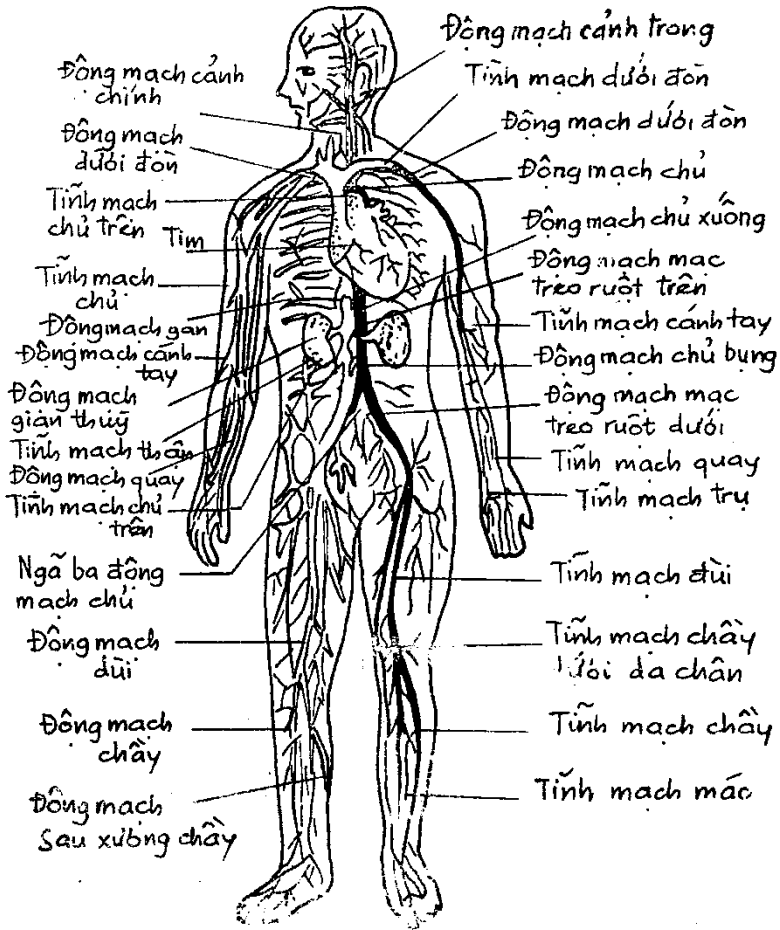 Động mạch cảnh
chính
Động mạch
dưới đòn
Tĩnh mạch
chủ trên
Tim
Tĩnh mạch
chủ
Động mạch gan
Động mạch cánh
tay
Động mạch
gian thùy
Tĩnh mạch thận
Động mạch quay
Tĩnh mạch chủ
trên
Ngã ba động
mạch chủ
Động mạch
dùi
Động mạch
chầy
Động mạch
Sau xương chầy
Động mạch cảnh trong
Tĩnh mạch dưới đòn
Động mạch dưới đòn
Động mạch chủ
Động mạch chủ xuống
Động mạch mạc
treo ruột trên
Tĩnh mạch cánh tay
Động mạch chủ bụng
Động mạch mạc
treo ruột dưới
Tĩnh mạch quay
Tĩnh mạch trụ
Tĩnh mạch đùi
Tĩnh mạch chầy
dưới da chân
Tĩnh mạch chầy
Tĩnh mạch mác